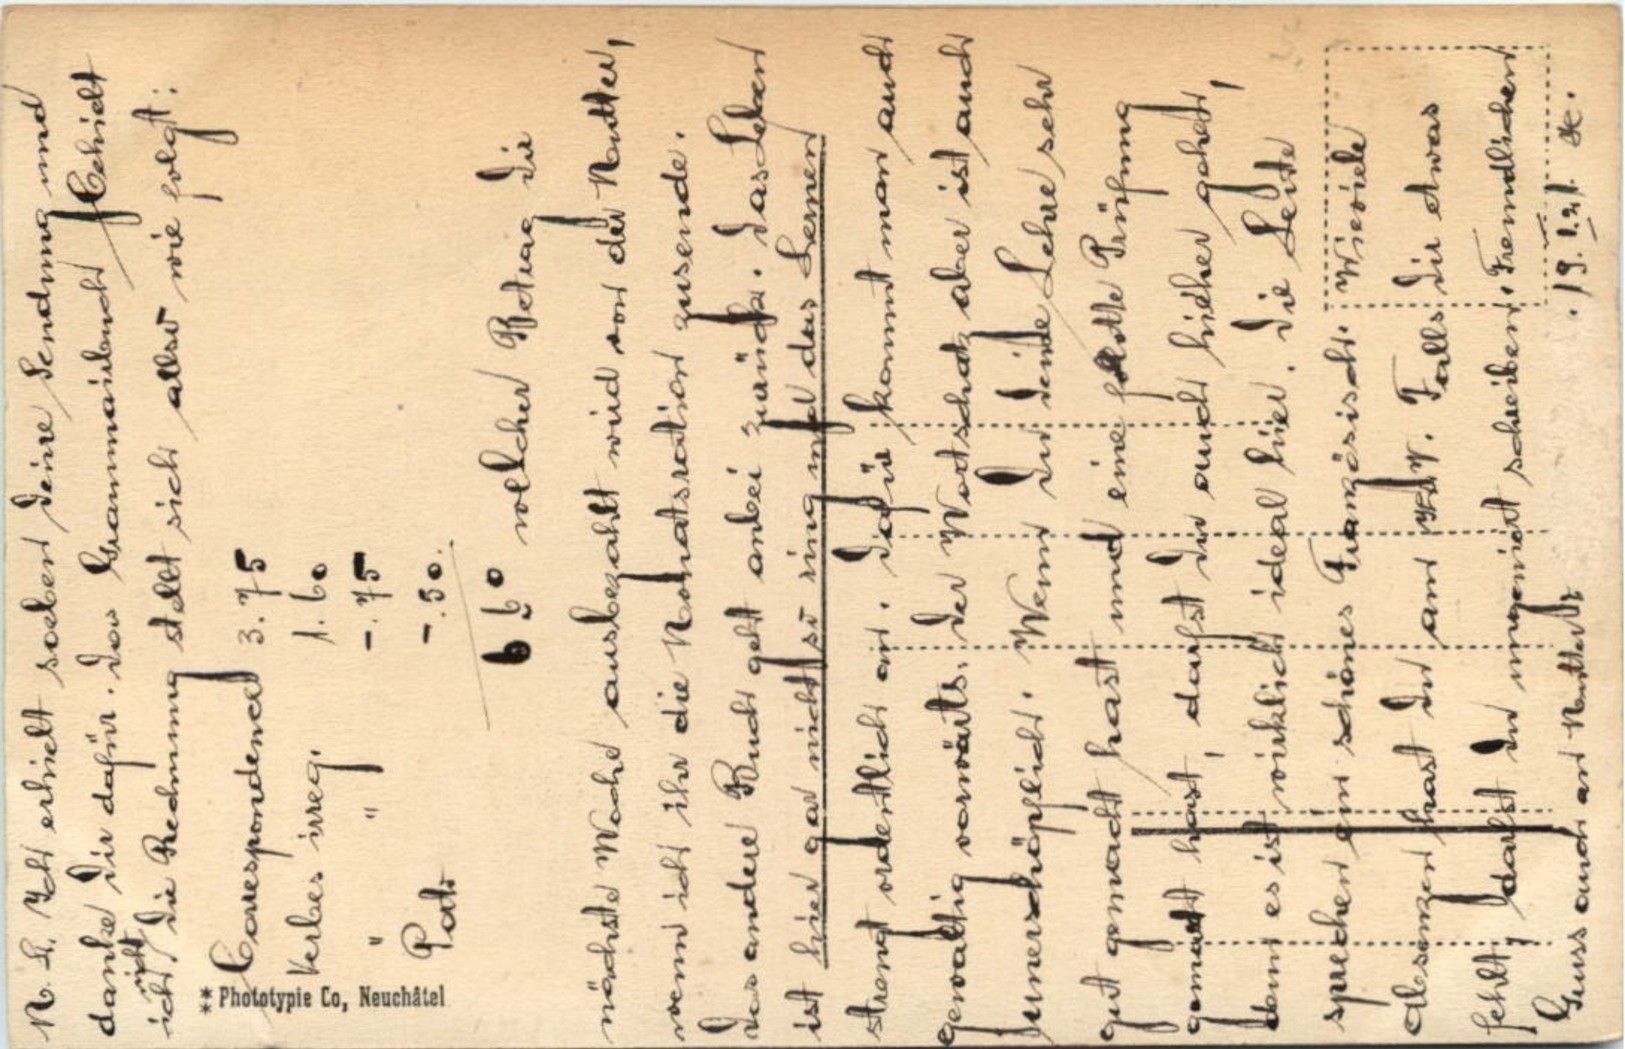 N. L. Ich erhielt soeben deine Sendung und
danke Dir dafür. Das Grammairbuch behielt
ich nicht, die Rechnung stellt sich also wie folgt:
Correspondence 3.75
Verbes irreg. 1.60
" " -.75
Porti -.50
6.60 welcher Betrag Dir
nächste Woche ausbezahlt wird von der Mutter,
wenn ich ihr die Monatsration zusende.
Das andere Buch geht anbei zurück. Das Leben
ist hier gar nicht so ring und das Lernen
strengt ordentlich an. Dafür kommt man auch
gewaltig vorwärts. Der Wortschatz aber ist auch
unerschöpflich. Wenn Du deine Lehre sehr
gut gemacht hast und eine flotte Prüfung
gemacht hast, darfst Du auch hieher gehen,
denn es ist wirklich ideal hier. Die Leute
sprechen ein schönes Französisch. Wieviele
Absenzen hast Du am K.V. Falls Dir etwas
fehlt, darfst Du mir schreiben. Freundlichen
Gruss auch an Mutter
19.1.21.
** Phototypie Co, Neuchâtel